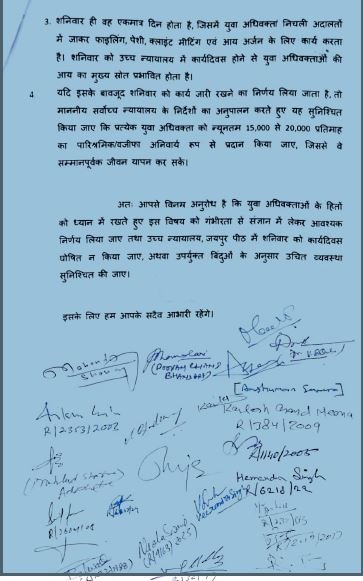 3. शनिवार ही वह एकमात्र दिन होता है, जिसमें युवा अधिवक्ता निचली अदालतों
में जाकर फाइलिंग, पेशी, क्लाइंट मीटिंग एवं आय अर्जन के लिए कार्य करता
है। शनिवार को उच्च न्यायालय में कार्यदिवस होने से युवा अधिवक्ताओं की
आय का मुख्य स्रोत प्रभावित होता है।
4. यदि इसके बावजूद शनिवार को कार्य जारी रखने का निर्णय लिया जाता है, तो
माननीय सर्वोच्च न्यायालय के निर्देशों का अनुपालन करते हुए यह सुनिश्चित
किया जाए कि प्रत्येक युवा अधिवक्ता को न्यूनतम 15,000 से 20,000 प्रतिमाह
का पारिश्रमिक/वजीफा अनिवार्य रूप से प्रदान किया जाए, जिससे वे
सम्मानपूर्वक जीवन यापन कर सकें।
अतः आपसे विनम्र अनुरोध है कि युवा अधिवक्ताओं के हितों
को ध्यान में रखते हुए इस विषय को गंभीरता से संज्ञान में लेकर आवश्यक
निर्णय लिया जाए तथा उच्च न्यायालय, जयपुर पीठ में शनिवार को कार्यदिवस
घोषित न किया जाए, अथवा उपर्युक्त बिंदुओं के अनुसार उचित व्यवस्था
सुनिश्चित की जाए।
इसके लिए हम आपके सदैव आभारी रहेंगे।
(POONAM CHAND
BHANDARI)
Kailash Chand Meena
R/384/2009
R/2353/2002
R/1140/2005
Advocate
Hemendra Singh
R/6218/22